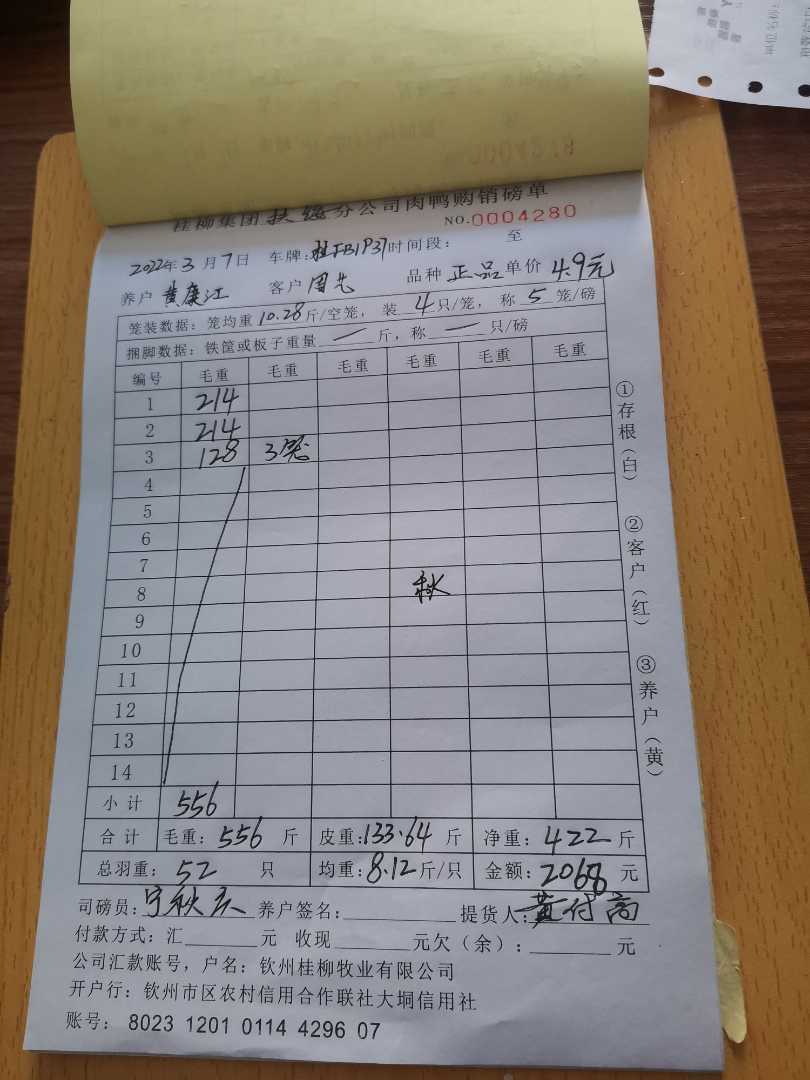 0004279
桂柳集团扶绥分公司肉鸭购销磅单
NO.0004280
2022年3月7日 车牌:桂FB1937 时间段: 至
养户 黄康江 客户 周艺 品种 正品 单价 4.9元
笼装数据: 笼均重10.28斤/空笼, 装4只/笼, 称5笼/磅
捆脚数据: 铁筐或板子重量 一 斤, 称 一 只/磅
编号 毛重 毛重 毛重 毛重 毛重 毛重
1 214
2 214
3 128 3笼
4
5
6
7
8 秋
9
10
11
12
13
14
小计 556
合计 毛重: 556 斤 皮重: 133.64 斤 净重: 422 斤
总羽重: 52 只 均重: 8.12斤/只 金额: 2068 元
司磅员: 宁秋 养户签名: 提货人: 黄付高
付款方式: 汇 元 收现 元欠(余): 元
公司汇款账号, 户名: 钦州桂柳牧业有限公司
开户行: 钦州市区农村信用合作联社大垌信用社
账号: 8023 1201 0114 4296 07
①存根(白)
②客户(红)
③养户(黄)